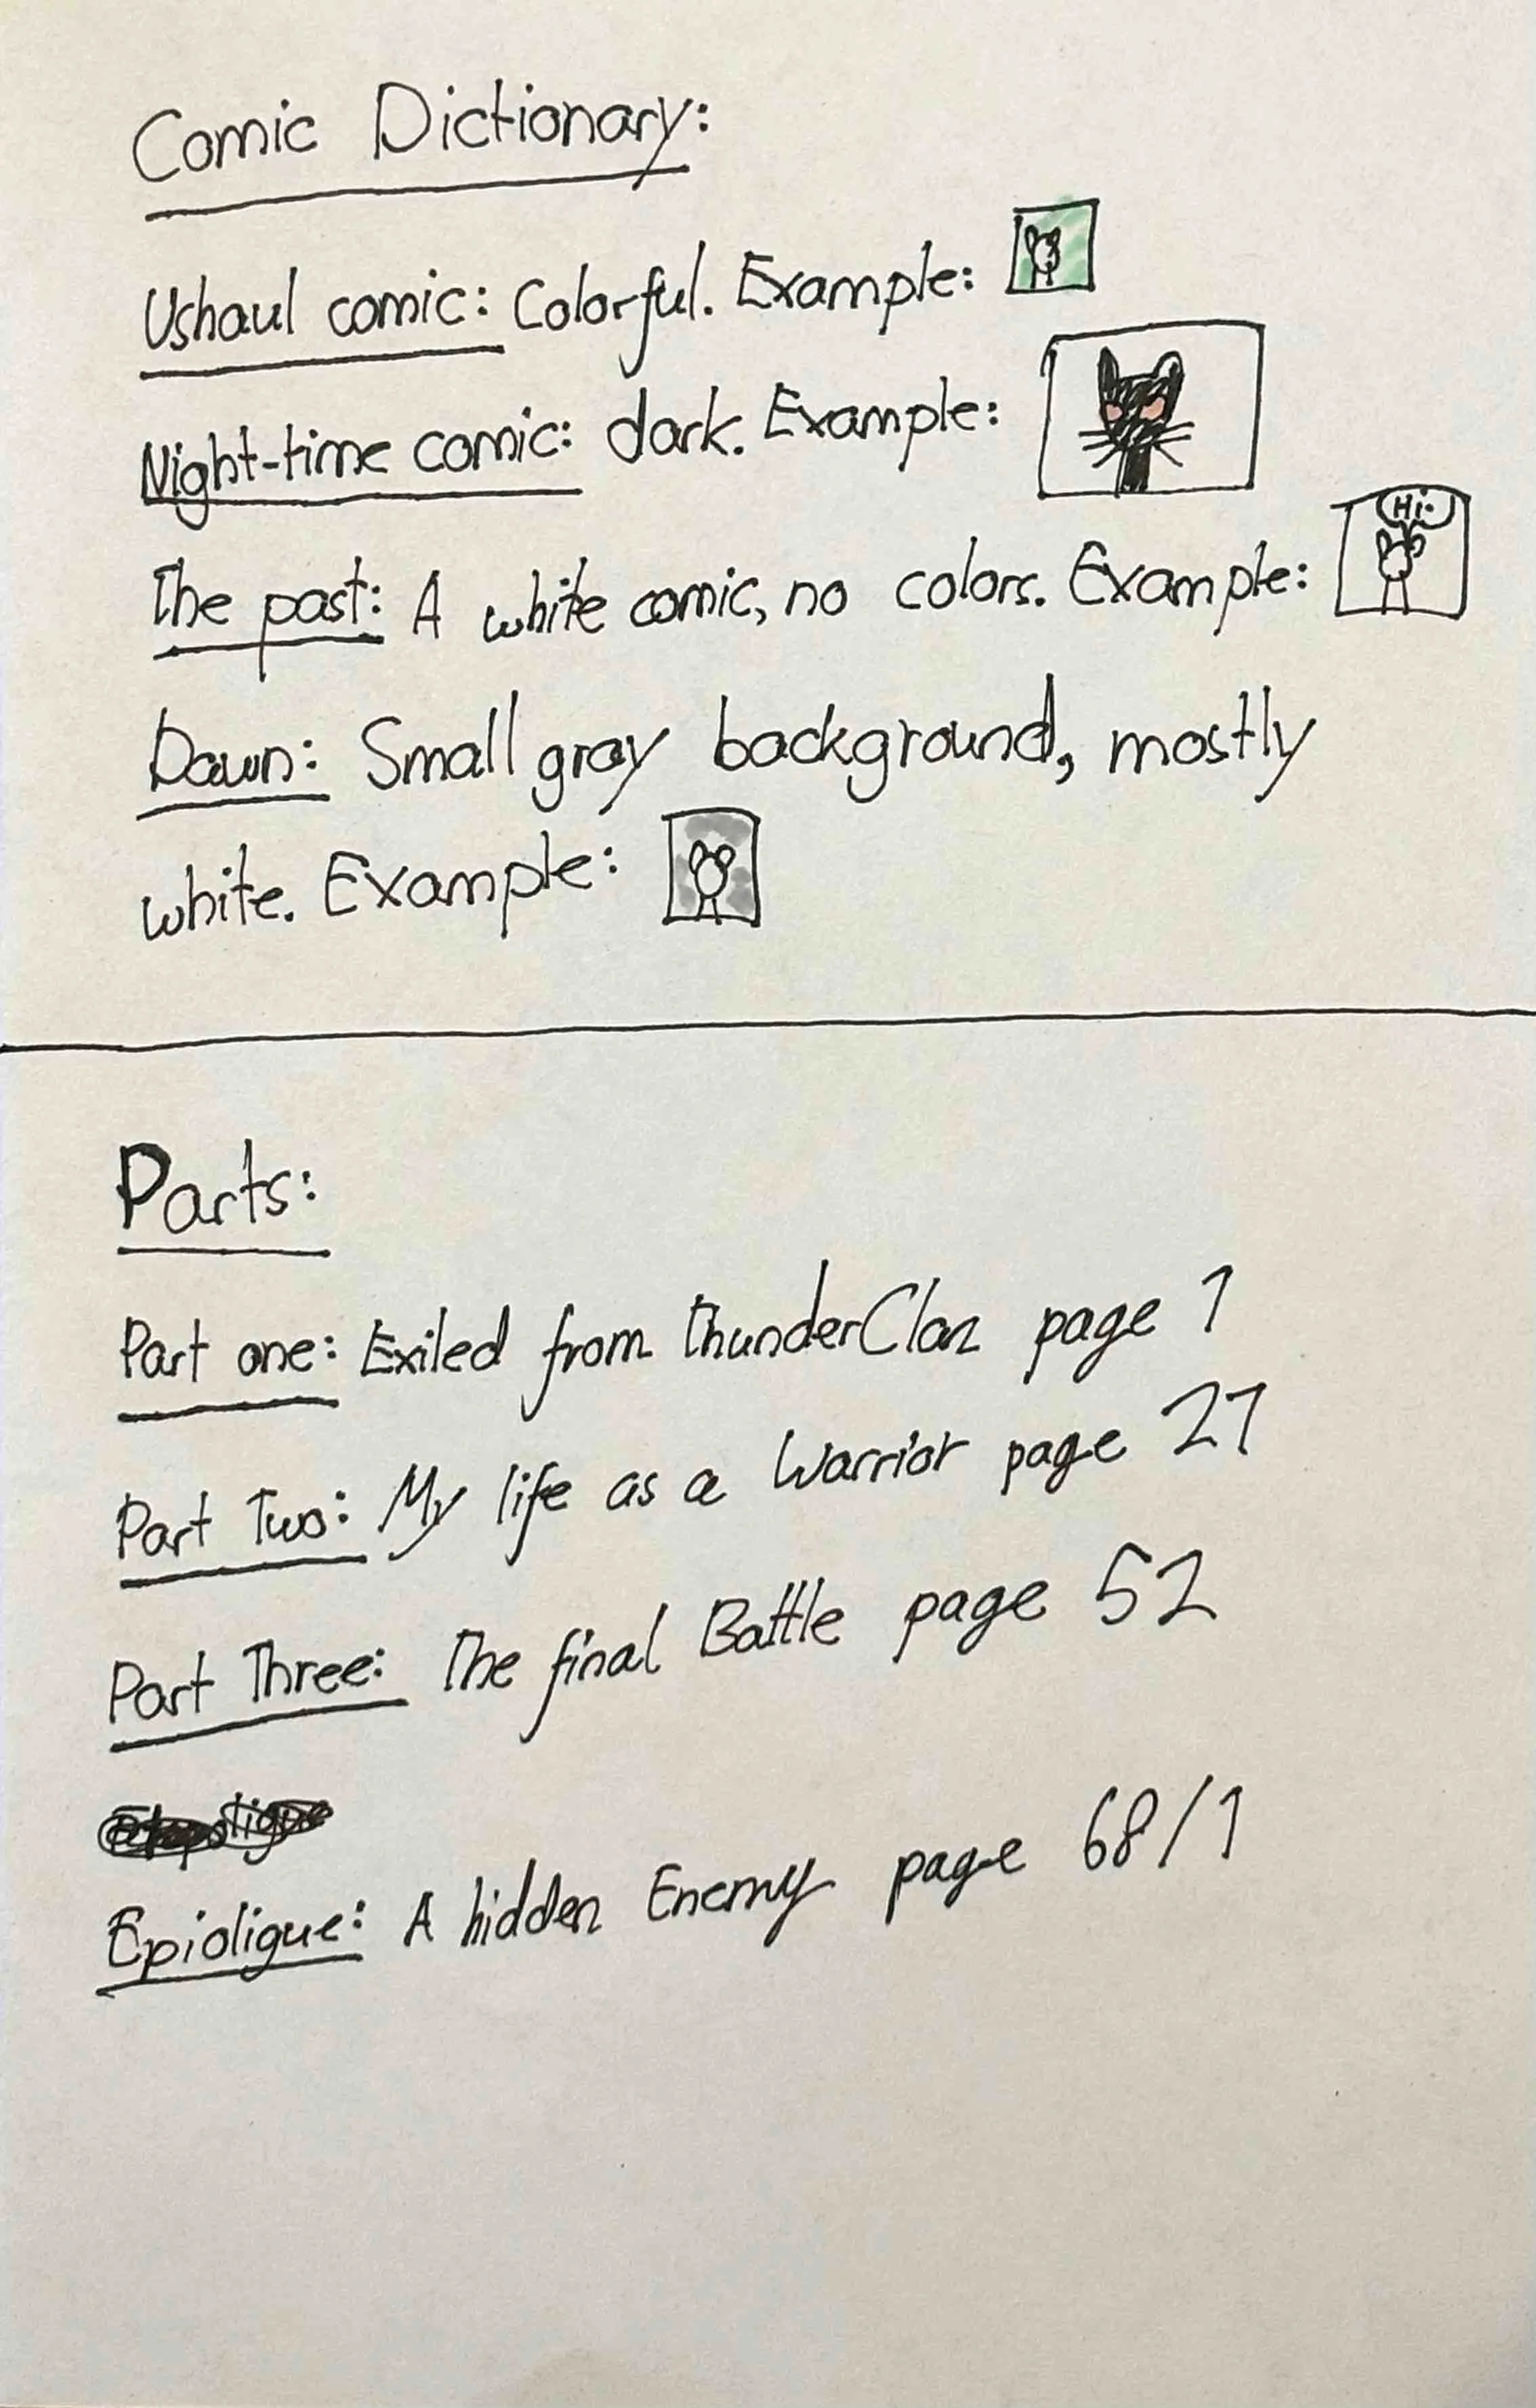 Comic Dictionary:
Ushaul comic: Colorful. Example:
Night-time comic: dark. Example:
Hi.
The past: A white comic, no colors. Example:
Dawn: Small gray background, mostly
white. Example:
Parts:
Part one: Exiled from ThunderClan page 1
Part Two: My life as a Warrior page 21
Part Three: The final Battle page 52
Epioligue: A hidden Enemy page 68/1